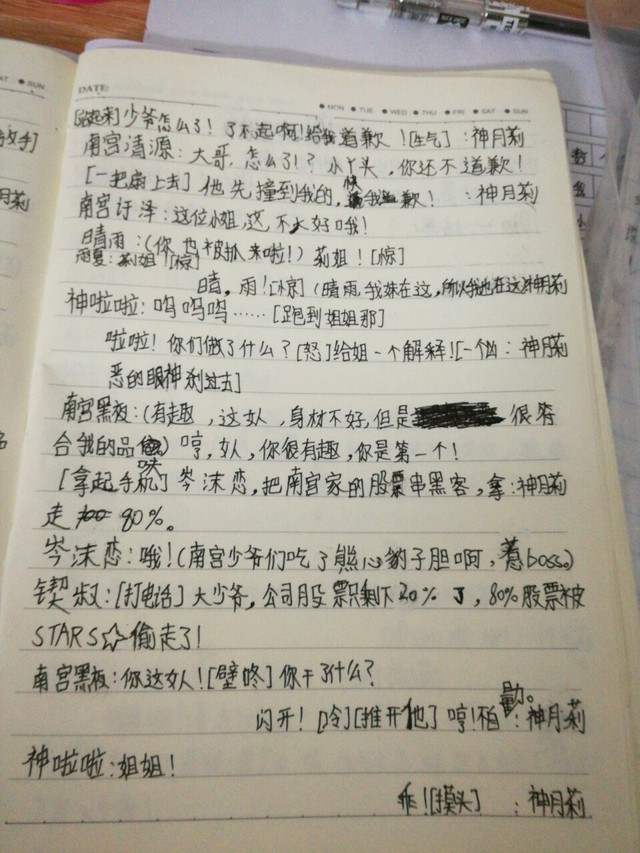 DATE:
●MON ●TUE ●WED ●THU ●FRI ●SAT ●SUN
[站起来]少爷怎么了！了不起啊！给我道歉！[生气]：神月莉
南宫清源：大哥，怎么了！？小丫头，你还不道歉！
[一把扇上去]他先撞到我的，快我道歉！：神月莉
南宫订泽：这位小姐，这，不太好哦！
晴雨：(你也被抓来啦！)莉姐！[惊]
雨夏：莉姐！[惊]
晴，雨！[惊](晴雨，我妹在这，所以我也在这)神月莉
神啦啦：呜呜呜……[跑到姐姐那]
啦啦！你们做了什么？[怒]给姐一个解释![一个凶：神月莉
恶的眼神刹过去]
南宫黑板：(有趣，这女人，身材不好，但是 很符
合我的品味)哼，女人，你很有趣，你是第一个！
[拿起手机]岑沫恋，把南宫家的股票串黑客，拿：神月莉
走 80%。
岑沫恋：哦！(南宫少爷们吃了熊心豹子胆啊，惹boss。)
锲叔：[打电话]大少爷，公司股票只剩下20%了，80%股票被
STARS☆偷走了！
南宫黑板：你这女人！[壁咚]你干了什么？
闪开！[冷][推开他]哼！不自量。：神月莉
神啦啦：姐姐！
乖！[摸头]：神月莉
AT ●SUN
放手]
月莉